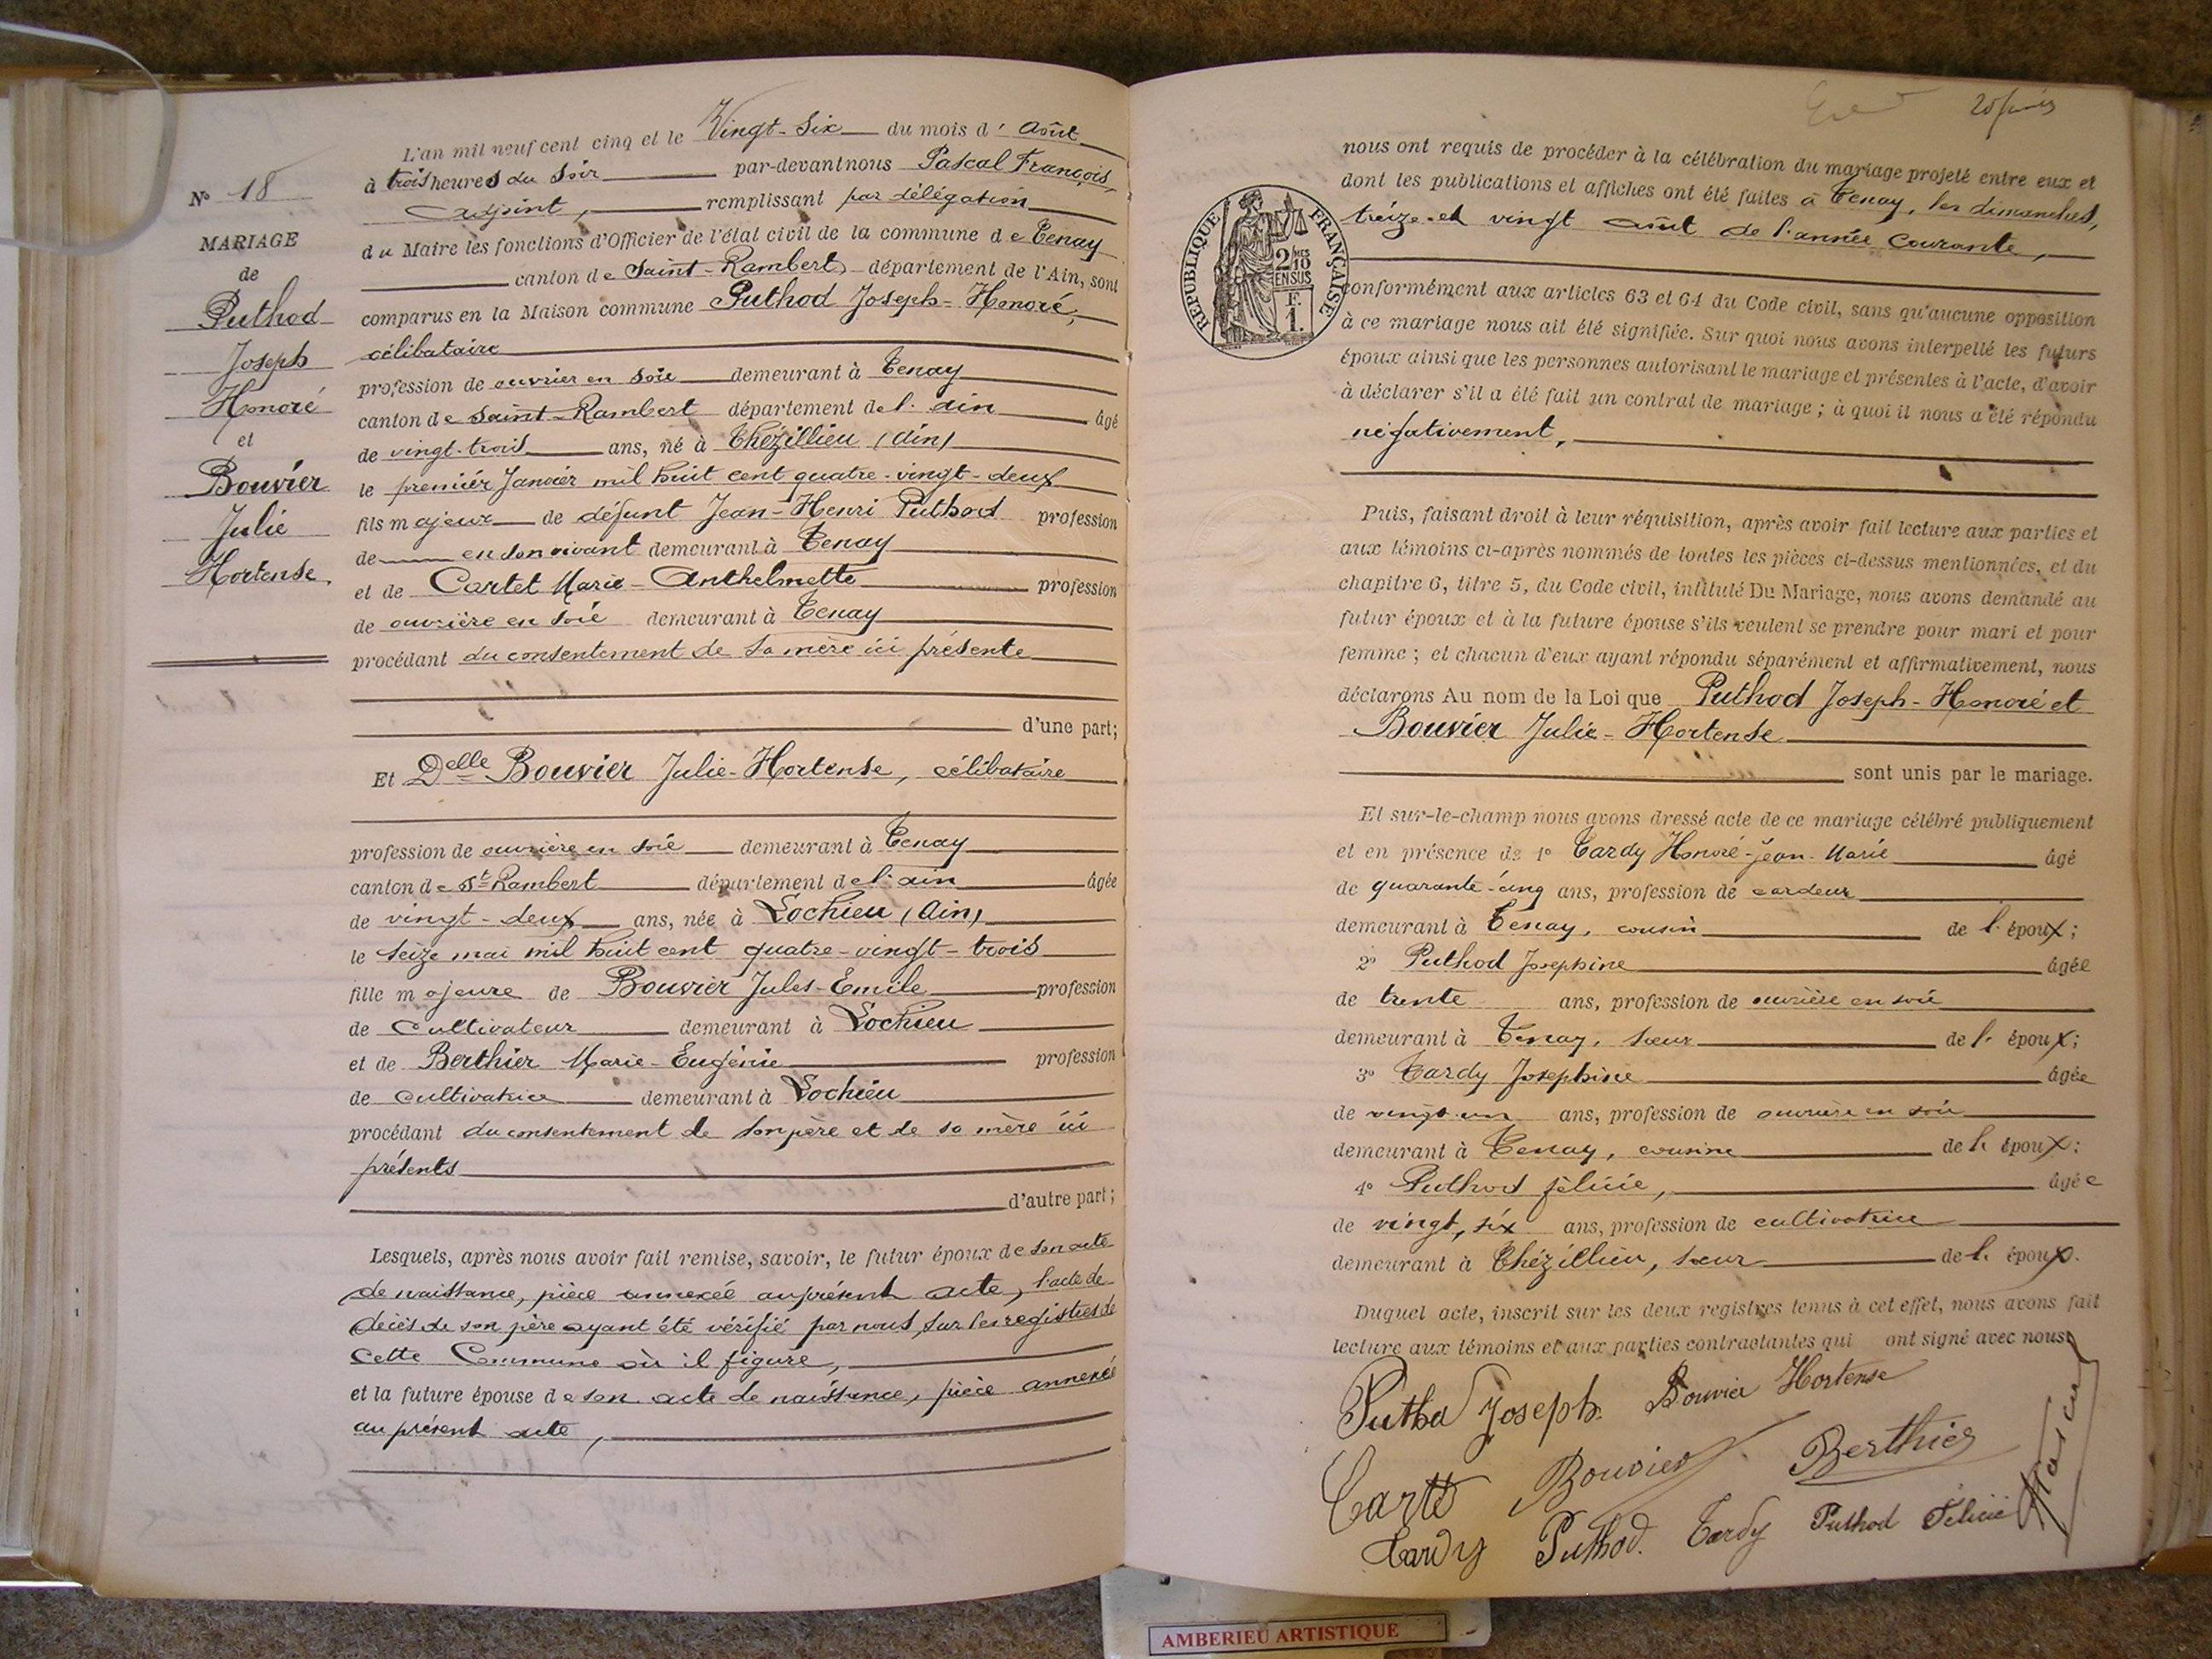 L'an mil neuf cent cinq et le Vingt-Six du mois d' Août
à trois heures du Soir par-devant nous Pascal François,
adjoint, remplissant par délégation
du Maire les fonctions d'Officier de l'état civil de la commune de Tenay
canton de Saint-Rambert département de l'Ain, sont
comparus en la Maison commune Puthod Joseph-Honoré,
célibataire
profession de ouvrier en soie demeurant à Tenay
canton de Saint-Rambert département de l'ain âgé
de vingt-trois ans, né à Thézillieu (Ain)
le premier Janvier mil huit cent quatre-vingt-deux
fils majeur de défunt Jean-Henri Puthod profession
de en son vivant demeurant à Tenay
et de Cartet Marie-Anthelmette profession
de ouvrière en soie demeurant à Tenay
procédant du consentement de sa mère ici présente
d'une part;
Et Delle Bouvier Julie-Hortense, célibataire
profession de ouvrière en soie demeurant à Tenay
canton de St Rambert département de l'ain âgée
de vingt-deux ans, née à Lochieu (Ain)
le seize mai mil huit cent quatre-vingt-trois
fille majeure de Bouvier Jules-Emile profession
de Cultivateur demeurant à Lochieu
et de Berthier Marie-Eugénie profession
de cultivatrice demeurant à Lochieu
procédant du consentement de son père et de sa mère ici
présents
d'autre part;
Lesquels, après nous avoir fait remise, savoir, le futur époux de son acte
de naissance, pièce annexée au présent acte, l'acte de
décès de son père ayant été vérifié par nous sur les registres de
cette Commune où il figure,
et la future épouse de son acte de naissance, pièce annexée
au présent acte,
No 18
MARIAGE
de
Puthod
Joseph
Honoré
et
Bouvier
Julie
Hortense.
nous ont requis de procéder à la célébration du mariage projeté entre eux et
dont les publications et affiches ont été faites à Tenay, les dimanches,
treize et vingt août de l'année courante,
conformément aux articles 63 et 64 du Code civil, sans qu'aucune opposition
à ce mariage nous ait été signifiée. Sur quoi nous avons interpellé les futurs
époux ainsi que les personnes autorisant le mariage et présentes à l'acte, d'avoir
à déclarer s'il a été fait un contrat de mariage; à quoi il nous a été répondu
négativement,
Puis, faisant droit à leur réquisition, après avoir fait lecture aux parties et
aux témoins ci-après nommés de toutes les pièces ci-dessus mentionnées, et du
chapitre 6, titre 5, du Code civil, intitulé Du Mariage, nous avons demandé au
futur époux et à la future épouse s'ils veulent se prendre pour mari et pour
femme; et chacun d'eux ayant répondu séparément et affirmativement, nous
déclarons Au nom de la Loi que Puthod Joseph-Honoré et
Bouvier Julie-Hortense
sont unis par le mariage.
Et sur-le-champ nous avons dressé acte de ce mariage célébré publiquement
et en présence de 1o Tardy Honoré-Jean-Marie âgé
de quarante-cinq ans, profession de cardeur
demeurant à Tenay, cousin de l'époux;
2o Puthod Josephine âgée
de trente ans, profession de ouvrière en soie
demeurant à Tenay, soeur de l'époux;
3o Tardy Josephine âgée
de vingt-un ans, profession de ouvrière en soie
demeurant à Tenay, cousine de l'époux;
4o Puthod félicie, âgée
de vingt, six ans, profession de cultivatrice
demeurant à Thézillieu, soeur de l'époux.
Duquel acte, inscrit sur les deux registres tenus à cet effet, nous avons fait
lecture aux témoins et aux parties contractantes qui ont signé avec nous.
Puthod Joseph. Bouvier Hortense
Cartet Bouvier Berthier
Tardy Puthod. Tardy Puthod Félicie Pascal
REPUBLIQUE FRANÇAISE
2/10mes
EN SUS
F.
1.
AMBERIEU ARTISTIQUE